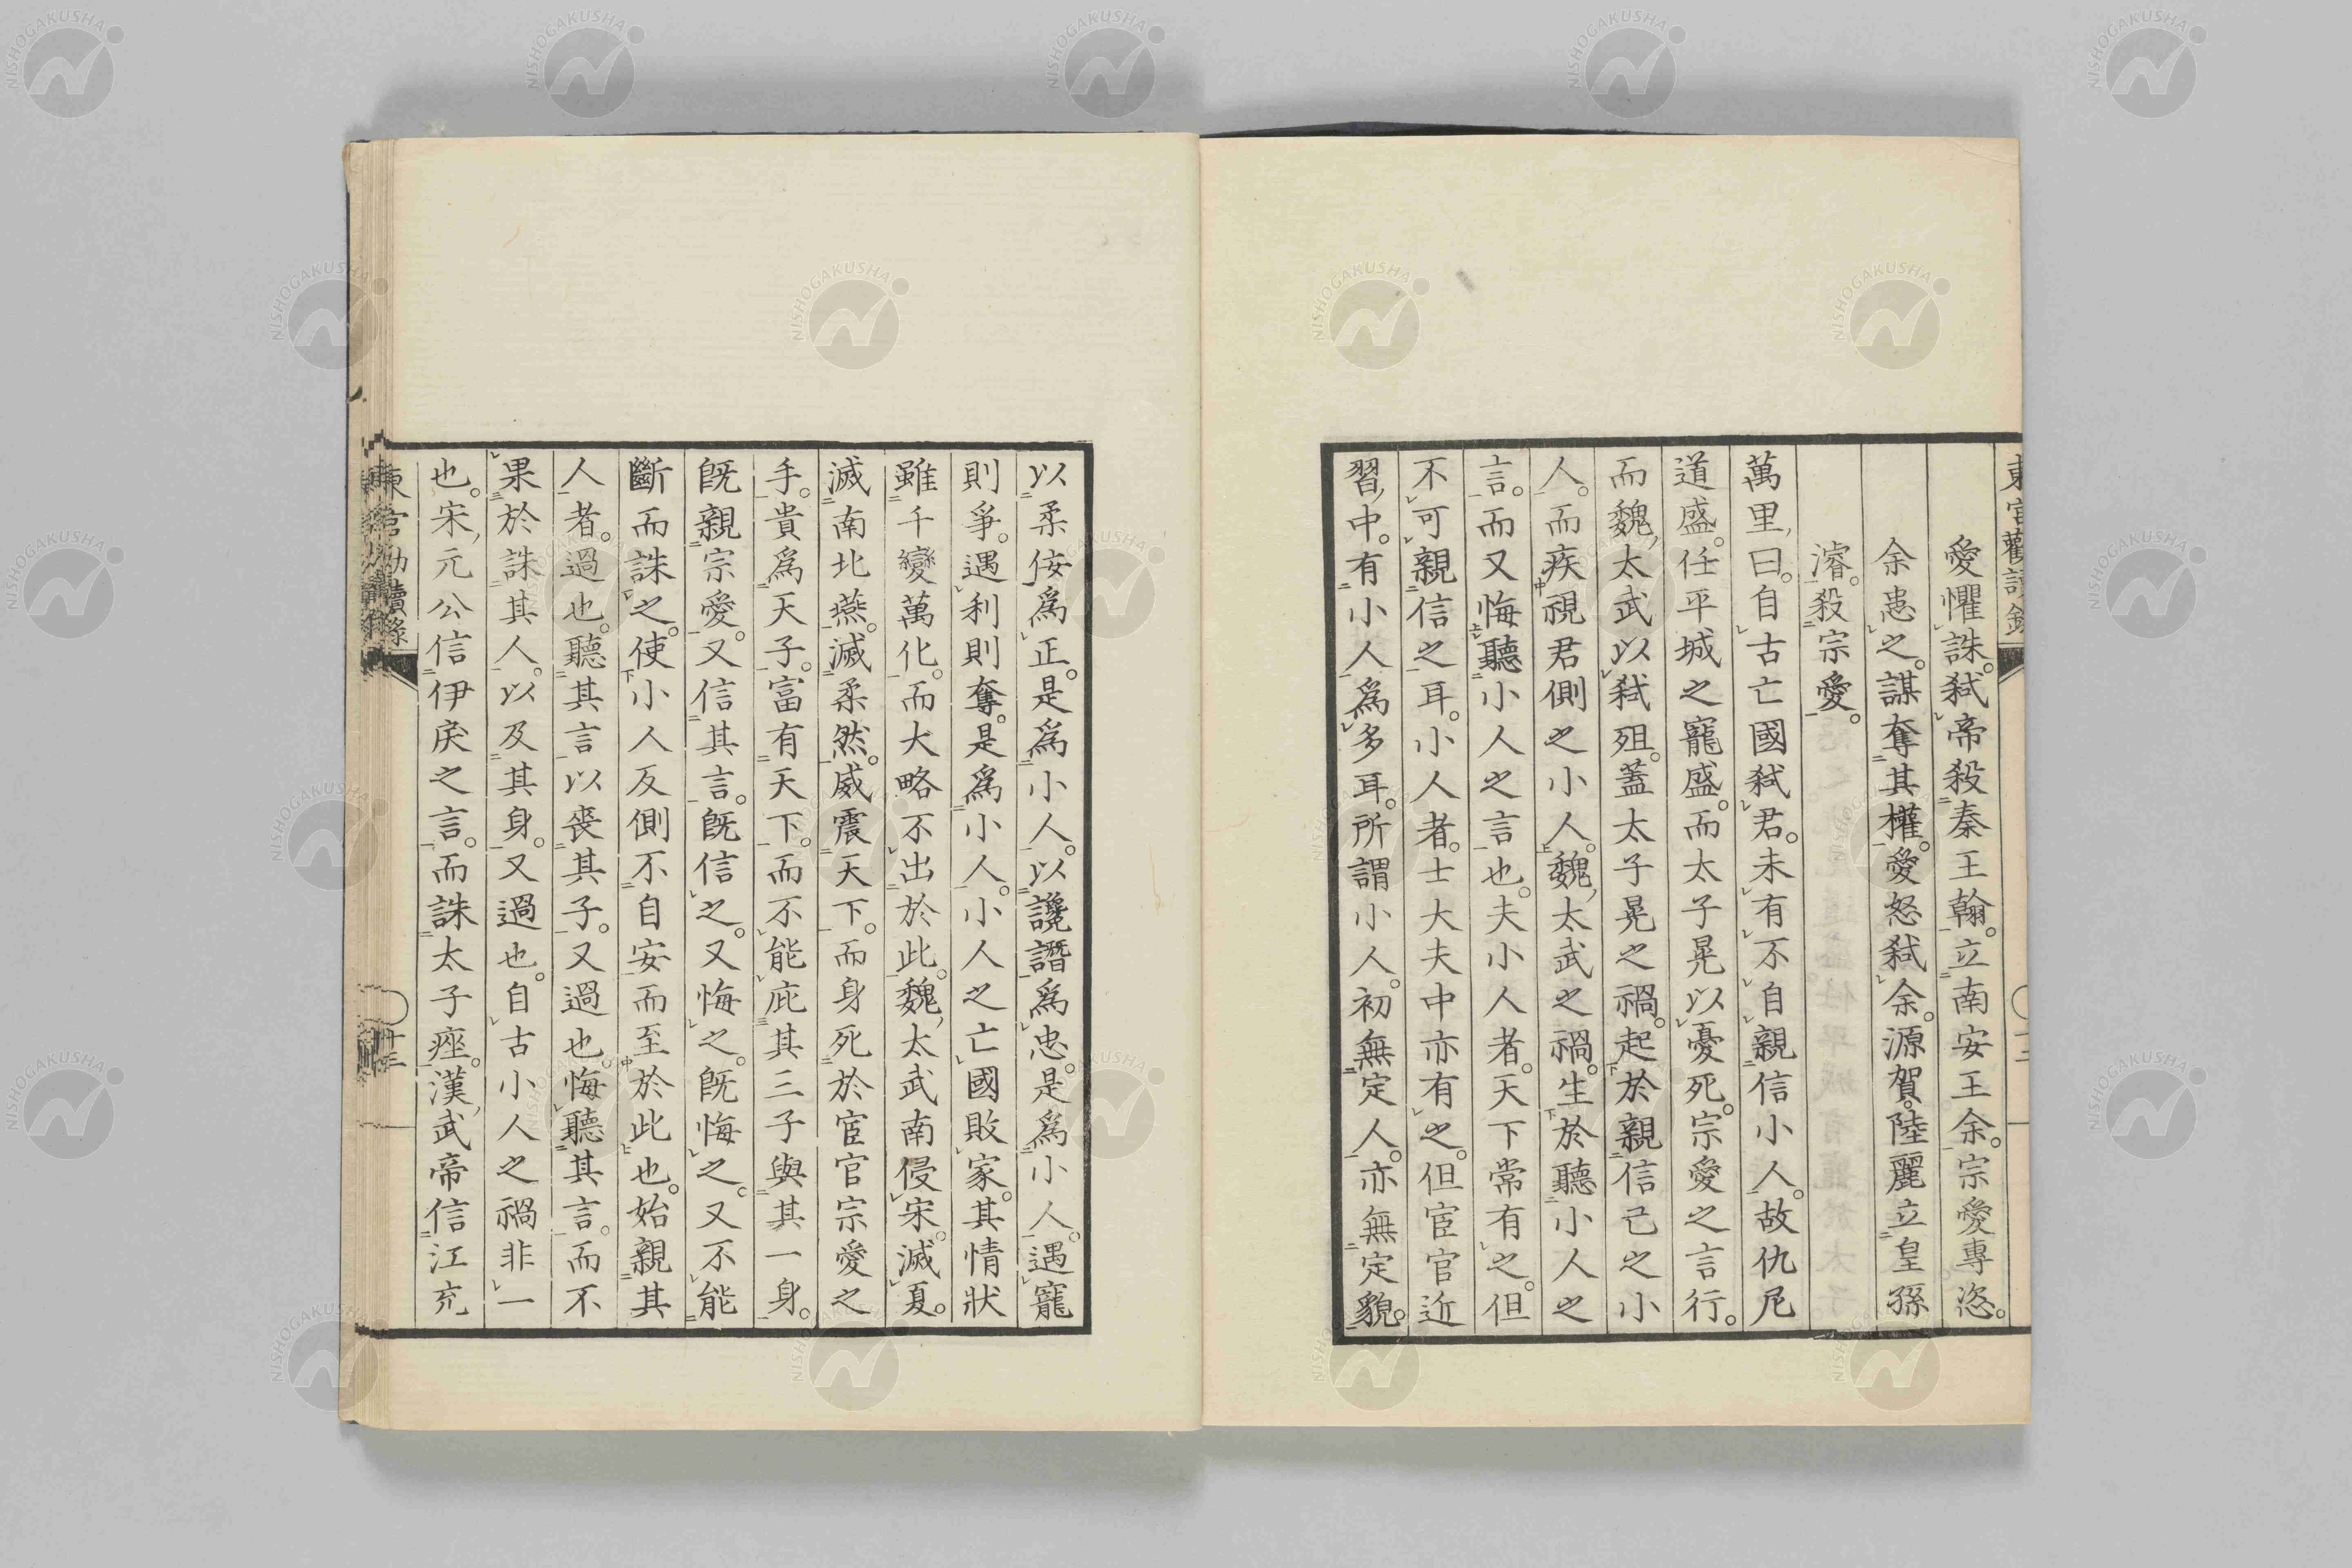 愛懼誅。弑帝殺秦王翰。立南安王余。宗愛專恣。
余患之。謀奪其權。愛怒弑余。源賀。陸麗立皇孫
濬。殺宗愛。
萬里曰。自古亡國弑君。未有不自親信小人。故仇尼
道盛。任平城之寵盛。而太子晃以憂死。宗愛之言行。
而魏太武以弑殂。蓋太子晃之禍。起於親信己之小
人。而疾視君側之小人。魏太武之禍。生於聽小人之
言。而又悔聽小人之言也。夫小人者。天下常有之。但
不可親信之耳。小人者。士大夫中亦有之。但宦官近
習中。有小人為多耳。所謂小人。初無定人。亦無定貌。
以柔佞為正。是為小人。以讒譖為忠。是為小人。遇寵
則爭。遇利則奪。是為小人。小人之亡國敗家。其情狀
雖千變萬化。而大略不出於此。魏太武南侵宋。滅夏。
滅南北燕。滅柔然。威震天下。而身死於宦官宗愛之
手。貴為天子。富有天下。而不能庇其三子與其一身。
既親宗愛。又信其言。既信之。又悔之。既悔之。又不能
斷而誅之。使小人反側不自安而至於此也。始親其
人者。過也。聽其言以喪其子。又過也。悔聽其言。而不
果於誅其人。以及其身。又過也。自古小人之禍非一
也。宋元公信伊戾之言。而誅太子痤。漢武帝信江充
東宮勸讀錄
十三
NISHOGAKUSHA